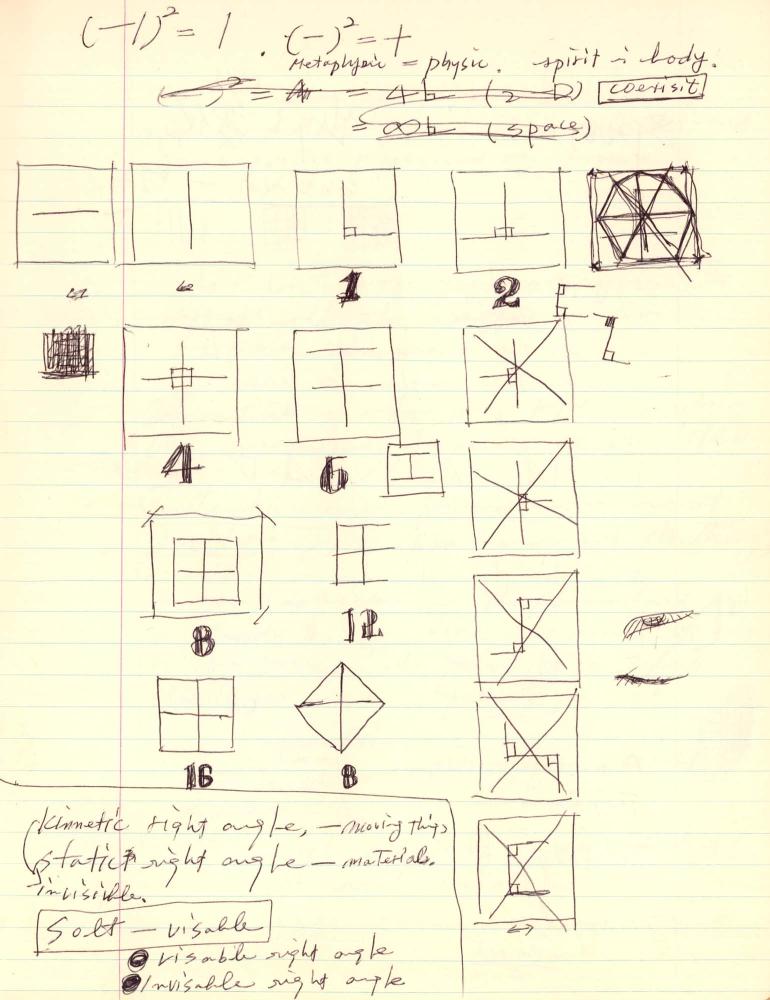 (-1)² = 1 . (-)² = +
Metaphysic = physic. spirit is body.
= 4b (2 D) coexisit
= ∞b (space)
1
2
4
6
8
12
16
8
kinnetic right angle, — moving things
static right angle — materials.
invisible.
Solt — visable
visable right angle
Invisable right angle